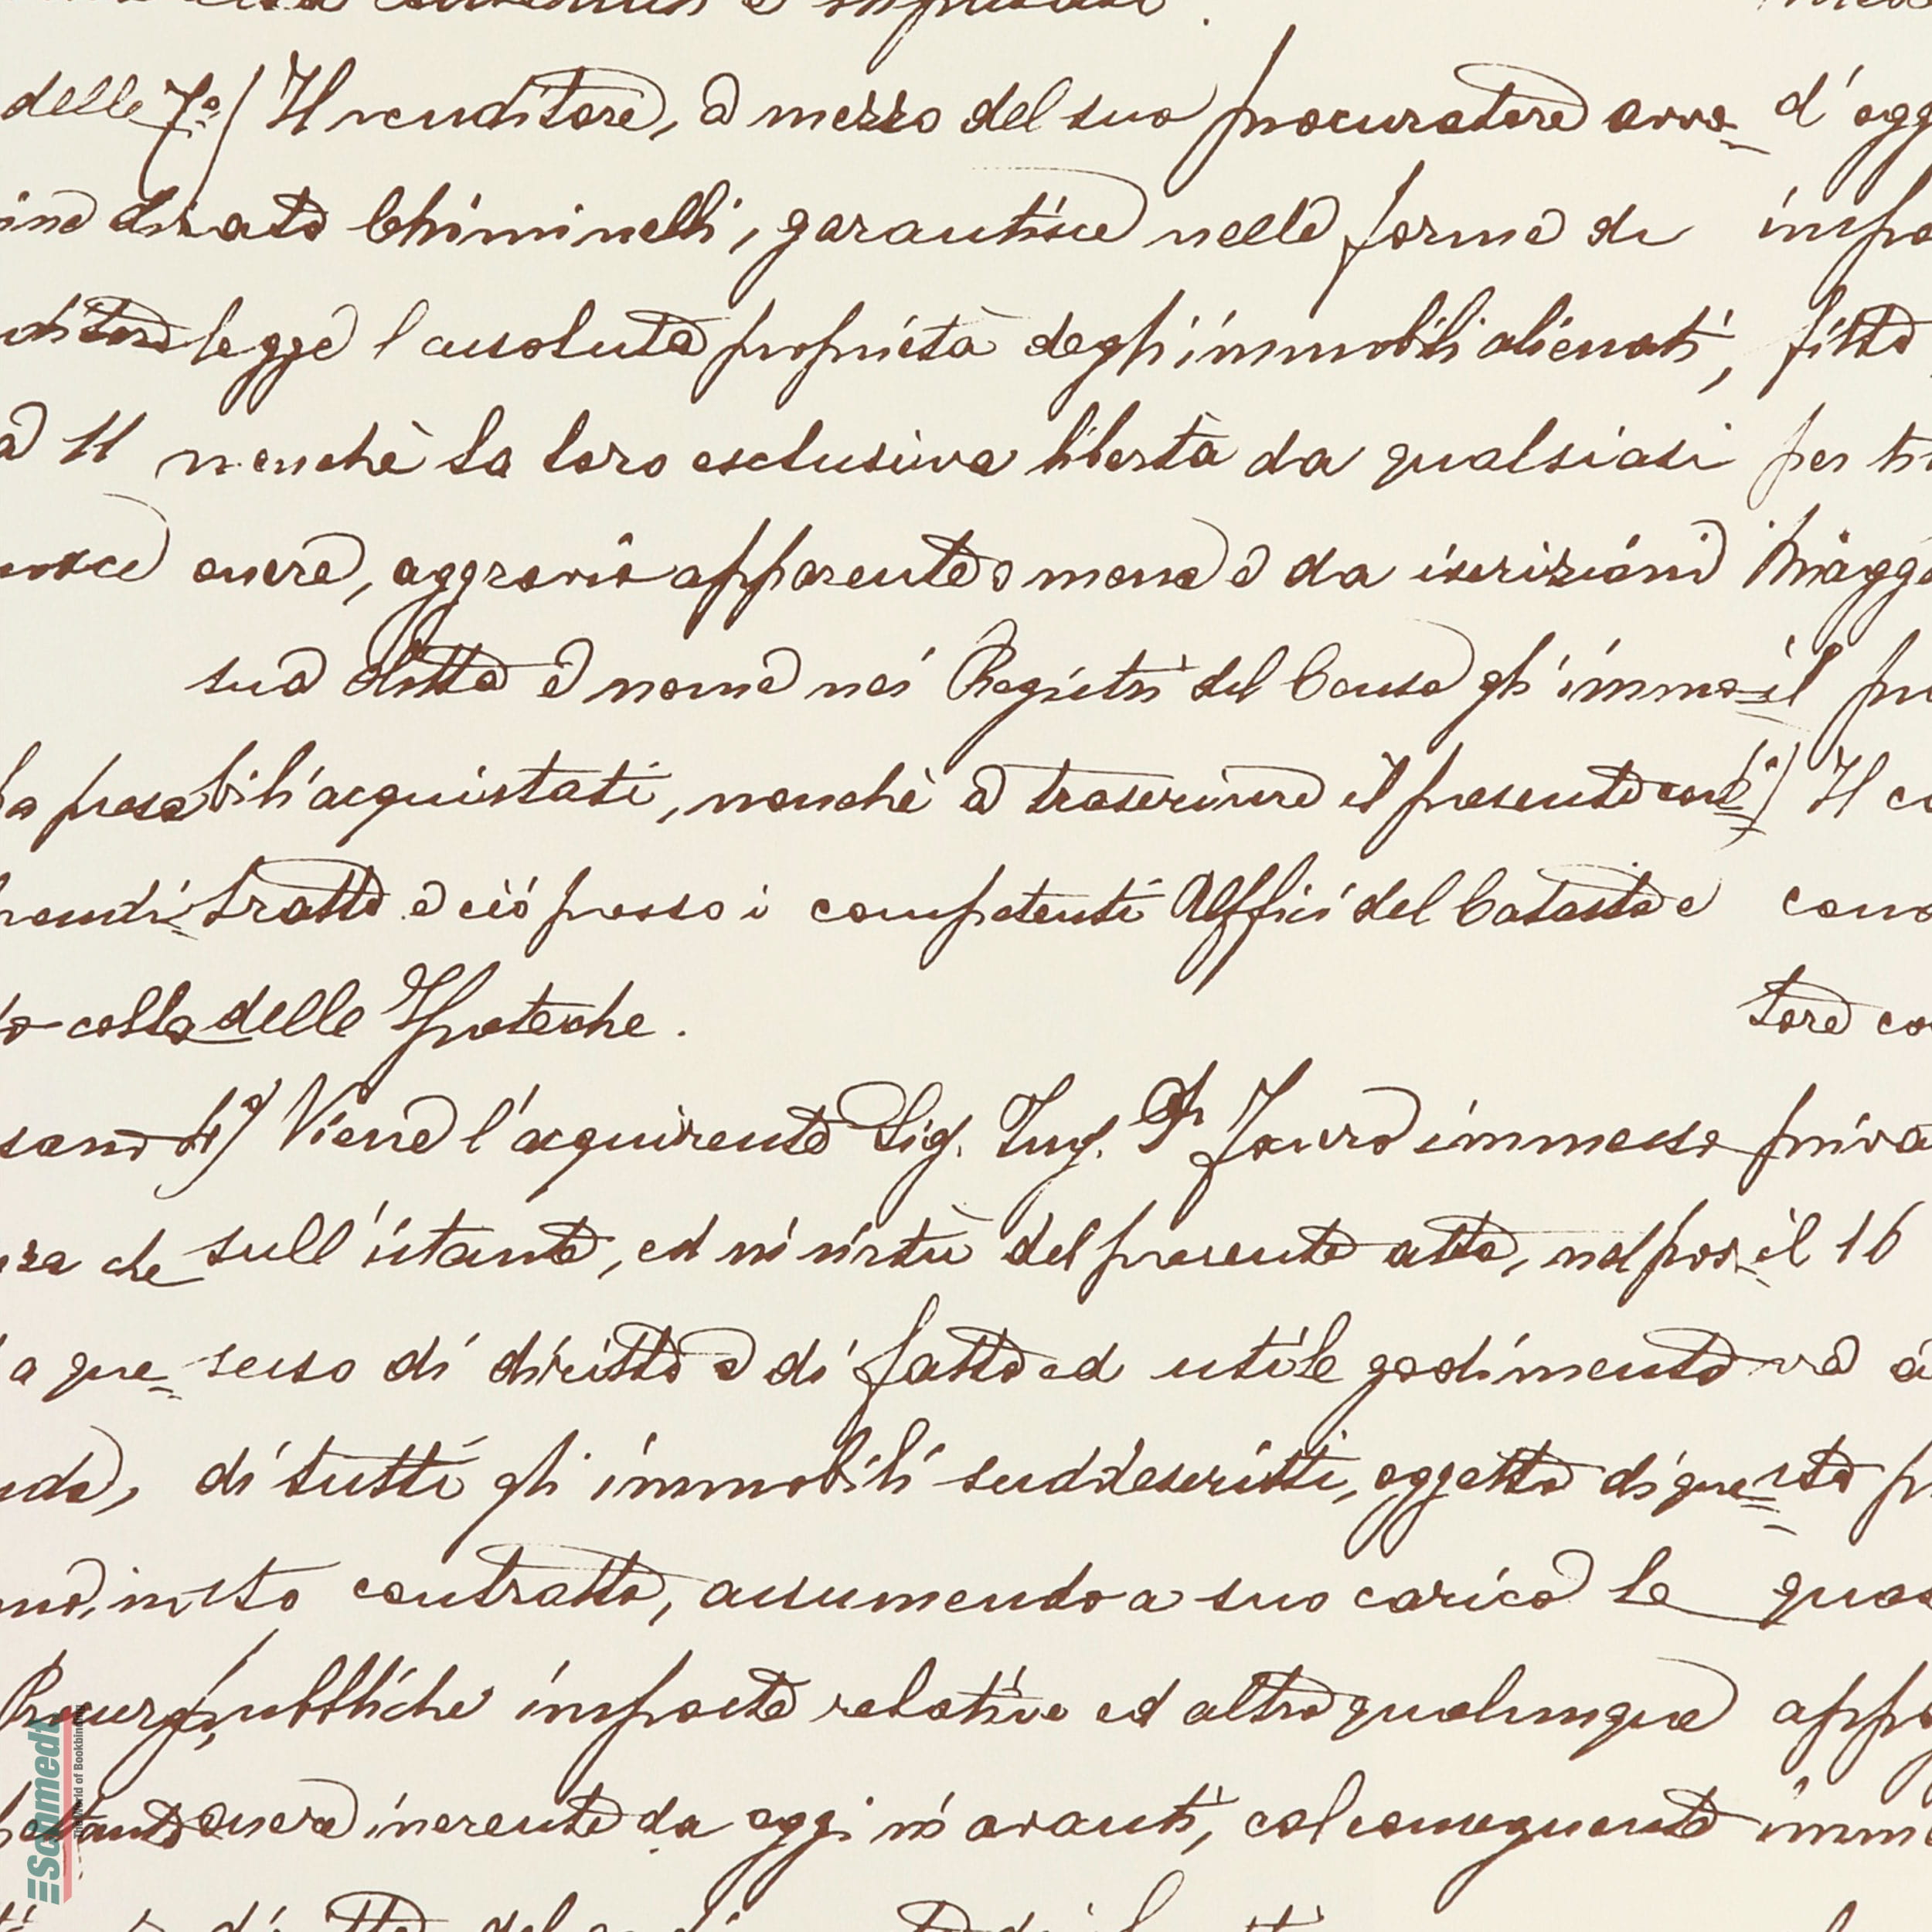 delle 7º) Il venditore, a mezzo del suo procuratore avvo= d'ogg
dirato Chiminelli, garantisce nelle forme di impo
legge l'assoluta proprietà degli immobili alienati, fitto
a 11 nonchè la loro esclusiva libertà da qualsiasi per
onere, aggravio apparente o meno e da iscrizioni Magg
sua ditta e nome nei Registri del Censo gli immo= il
bili acquistati, nonchè a trascrivere il presente con= ) Il co
tratto e ciò presso i competenti Uffici del Catasto e
colla delle Ipoteche. tore co
) Viene l'acquirente Sig. Ing. Fauro immesso priva
che sull'istante, ed in virtù del presente atto, nel pos= il 16
a que= sesso di diritto e di fatto ed utile godimento
di tutti gli immobili suddescritti, oggetto di que= sto
sto contratto, assumendo a suo carico le
pubbliche imposte relative ed altro qualunque app
onere inerente da oggi in avanti, col conseguente
Schmedt
The World of Bookbinding